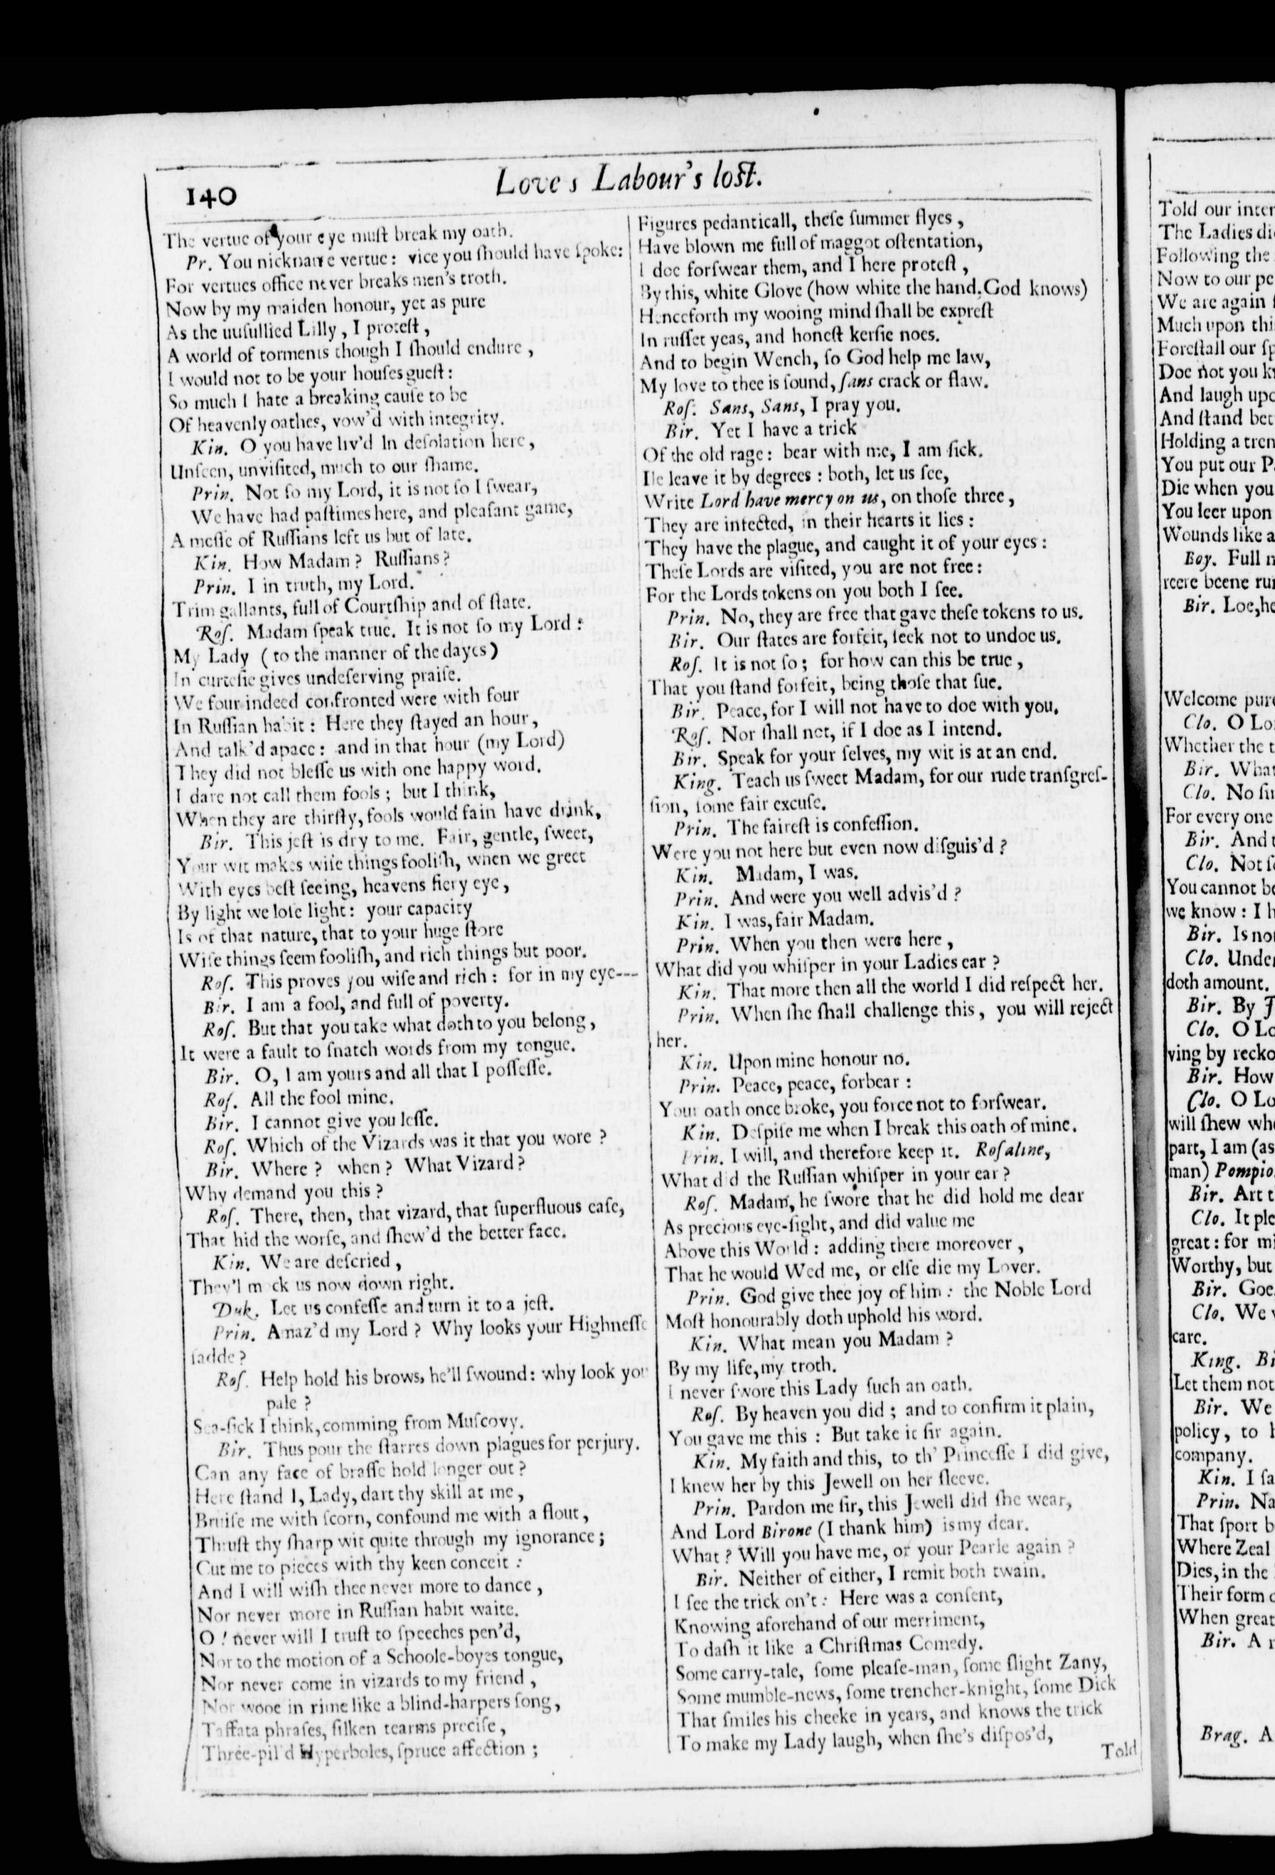 140
Love's Labour's lost.
The vertue of your eye must break my oath.
Pr. You nickname vertue: vice you should have spoke:
For vertues office never breaks men's troth.
Now by my maiden honour, yet as pure
As the uusullied Lilly, I protest,
A world of torments though I should endure,
I would not to be your houses guest:
So much I hate a breaking cause to be
Of heavenly oathes, vow'd with integrity.
Kin. O you have liv'd In desolation here,
Unseen, unvisited, much to our shame.
Prin. Not so my Lord, it is not so I swear,
We have had pastimes here, and pleasant game,
A messe of Russians left us but of late.
Kin. How Madam? Russians?
Prin. I in truth, my Lord.
Trim gallants, full of Courtship and of state.
Ros. Madam speak true. It is not so my Lord:
My Lady (to the manner of the dayes)
In curtesie gives undeserving praise.
We four indeed confronted were with four
In Russian habit: Here they stayed an hour,
And talk'd apace: and in that hour (my Lord)
They did not blesse us with one happy word.
I dare not call them fools; but I think,
When they are thirsty, fools would fain have drink.
Bir. This jest is dry to me. Fair, gentle, sweet,
Your wit makes wise things foolish, when we greet
With eyes best seeing, heavens fiery eye,
By light we lose light: your capacity
Is of that nature, that to your huge store
Wise things seem foolish, and rich things but poor.
Ros. This proves you wise and rich: for in my eye---
Bir. I am a fool, and full of poverty.
Ros. But that you take what doth to you belong,
It were a fault to snatch words from my tongue.
Bir. O, I am yours and all that I possesse.
Ros. All the fool mine.
Bir. I cannot give you lesse.
Ros. Which of the Vizards was it that you wore?
Bir. Where? when? What Vizard?
Why demand you this?
Ros. There, then, that vizard, that superfluous case,
That hid the worse, and shew'd the better face.
Kin. We are descried,
They'l mock us now down right.
Duk. Let us confesse and turn it to a jest.
Prin. Amaz'd my Lord? Why looks your Highnesse
sadde?
Ros. Help hold his brows, he'll swound: why look you
pale?
Sea-sick I think, comming from Muscovy.
Bir. Thus pour the starres down plagues for perjury.
Can any face of brasse hold longer out?
Here stand I, Lady, dart thy skill at me,
Bruise me with scorn, confound me with a flout,
Thrust thy sharp wit quite through my ignorance;
Cut me to pieces with thy keen conceit:
And I will wish thee never more to dance,
Nor never more in Russian habit waite.
O! never will I trust to speeches pen'd,
Nor to the motion of a Schoole-boyes tongue,
Nor never come in vizards to my friend,
Nor wooe in rime like a blind-harpers song,
Taffata phrases, silken tearms precise,
Three-pil'd Hyperboles, spruce affection;
Figures pedanticall, these summer flyes,
Have blown me full of maggot ostentation,
I doe forswear them, and I here protest,
By this, white Glove (how white the hand, God knows)
Henceforth my wooing mind shall be exprest
In russet yeas, and honest kersie noes.
And to begin Wench, so God help me law,
My love to thee is sound, sans crack or flaw.
Ros. Sans, Sans, I pray you.
Bir. Yet I have a trick
Of the old rage: bear with me, I am sick.
Ile leave it by degrees: both, let us see,
Write Lord have mercy on us, on those three,
They are infected, in their hearts it lies:
They have the plague, and caught it of your eyes:
These Lords are visited, you are not free:
For the Lords tokens on you both I see.
Prin. No, they are free that gave these tokens to us.
Bir. Our states are forfeit, seek not to undoe us.
Ros. It is not so; for how can this be true,
That you stand forfeit, being those that sue.
Bir. Peace, for I will not have to doe with you.
Ros. Nor shall not, if I doe as I intend.
Bir. Speak for your selves, my wit is at an end.
King. Teach us sweet Madam, for our rude transgres-
sion, some fair excuse.
Prin. The fairest is confession.
Were you not here but even now disguis'd?
Kin. Madam, I was.
Prin. And were you well advis'd?
Kin. I was, fair Madam.
Prin. When you then were here,
What did you whisper in your Ladies ear?
Kin. That more then all the world I did respect her.
Prin. When she shall challenge this, you will reject
her.
Kin. Upon mine honour no.
Prin. Peace, peace, forbear:
Your oath once broke, you force not to forswear.
Kin. Despise me when I break this oath of mine.
Prin. I will, and therefore keep it. Rosaline,
What did the Russian whisper in your ear?
Ros. Madam, he swore that he did hold me dear
As precious eye-sight, and did value me
Above this World: adding there moreover,
That he would Wed me, or else die my Lover.
Prin. God give thee joy of him: the Noble Lord
Most honourably doth uphold his word.
Kin. What mean you Madam?
By my life, my troth.
I never swore this Lady such an oath.
Ros. By heaven you did; and to confirm it plain,
You gave me this: But take it sir again.
Kin. My faith and this, to th' Princesse I did give,
I knew her by this Jewell on her sleeve.
Prin. Pardon me sir, this Jewell did she wear,
And Lord Birone (I thank him) is my dear.
What? Will you have me, or your Pearle again?
Bir. Neither of either, I remit both twain.
I see the trick on't: Here was a consent,
Knowing aforehand of our merriment,
To dash it like a Christmas Comedy.
Some carry-tale, some please-man, some slight Zany,
Some mumble-news, some trencher-knight, some Dick
That smiles his cheeke in years, and knows the trick
To make my Lady laugh, when she's dispos'd,
Told
Told our
The Ladies
Following the
Now to our
We are again
Much upon
Forestall our
Doe not you
And laugh
And stand
Holding a
You put our
Die when you
You leer upon
Wounds like a
Boy. Full
reere beene
Bir. Loe,
Welcome
Clo. O
Whether the
Bir.
Clo. No
For every one
Bir. And
Clo. Not
You cannot
we know: I
Bir. Is
Clo.
doth amount.
Bir. By
Clo. O
ving by
Bir. How
Clo. O
will shew
part, I am (as
man)
Bir. Art
Clo. It
great: for
Worthy, but
Bir.
Clo. We
care.
King.
Let them not
Bir. We
policy, to
company.
Kin. I
Prin.
That sport
Where Zeal
Dies, in the
Their form
When great
Bir. A
Brag. A